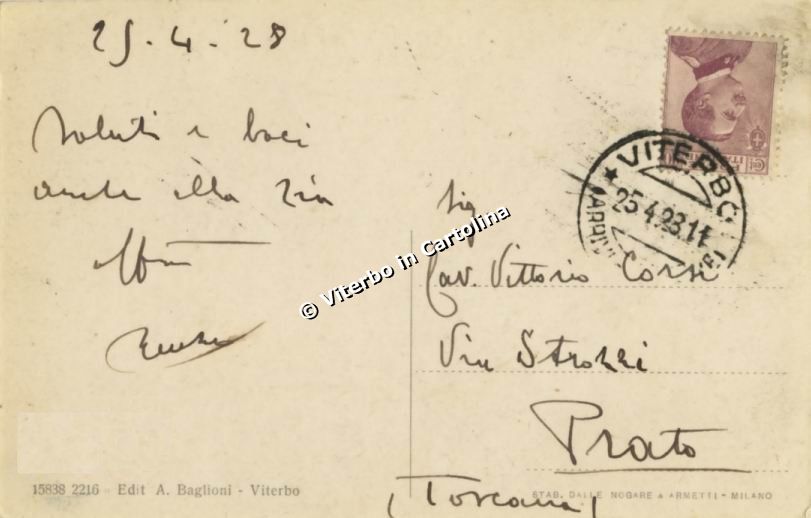 25.4.28
Saluti e baci
anche alla Zia
Sig
Cav. Vittorio Corsi
Via Strozzi
Prato
(Toscana)
VITERBO
25.4.28.11
© Viterbo in Cartolina
15838 2216 - Edit A. Baglioni - Viterbo
STAB. DALLE NOGARE & ARMETTI - MILANO